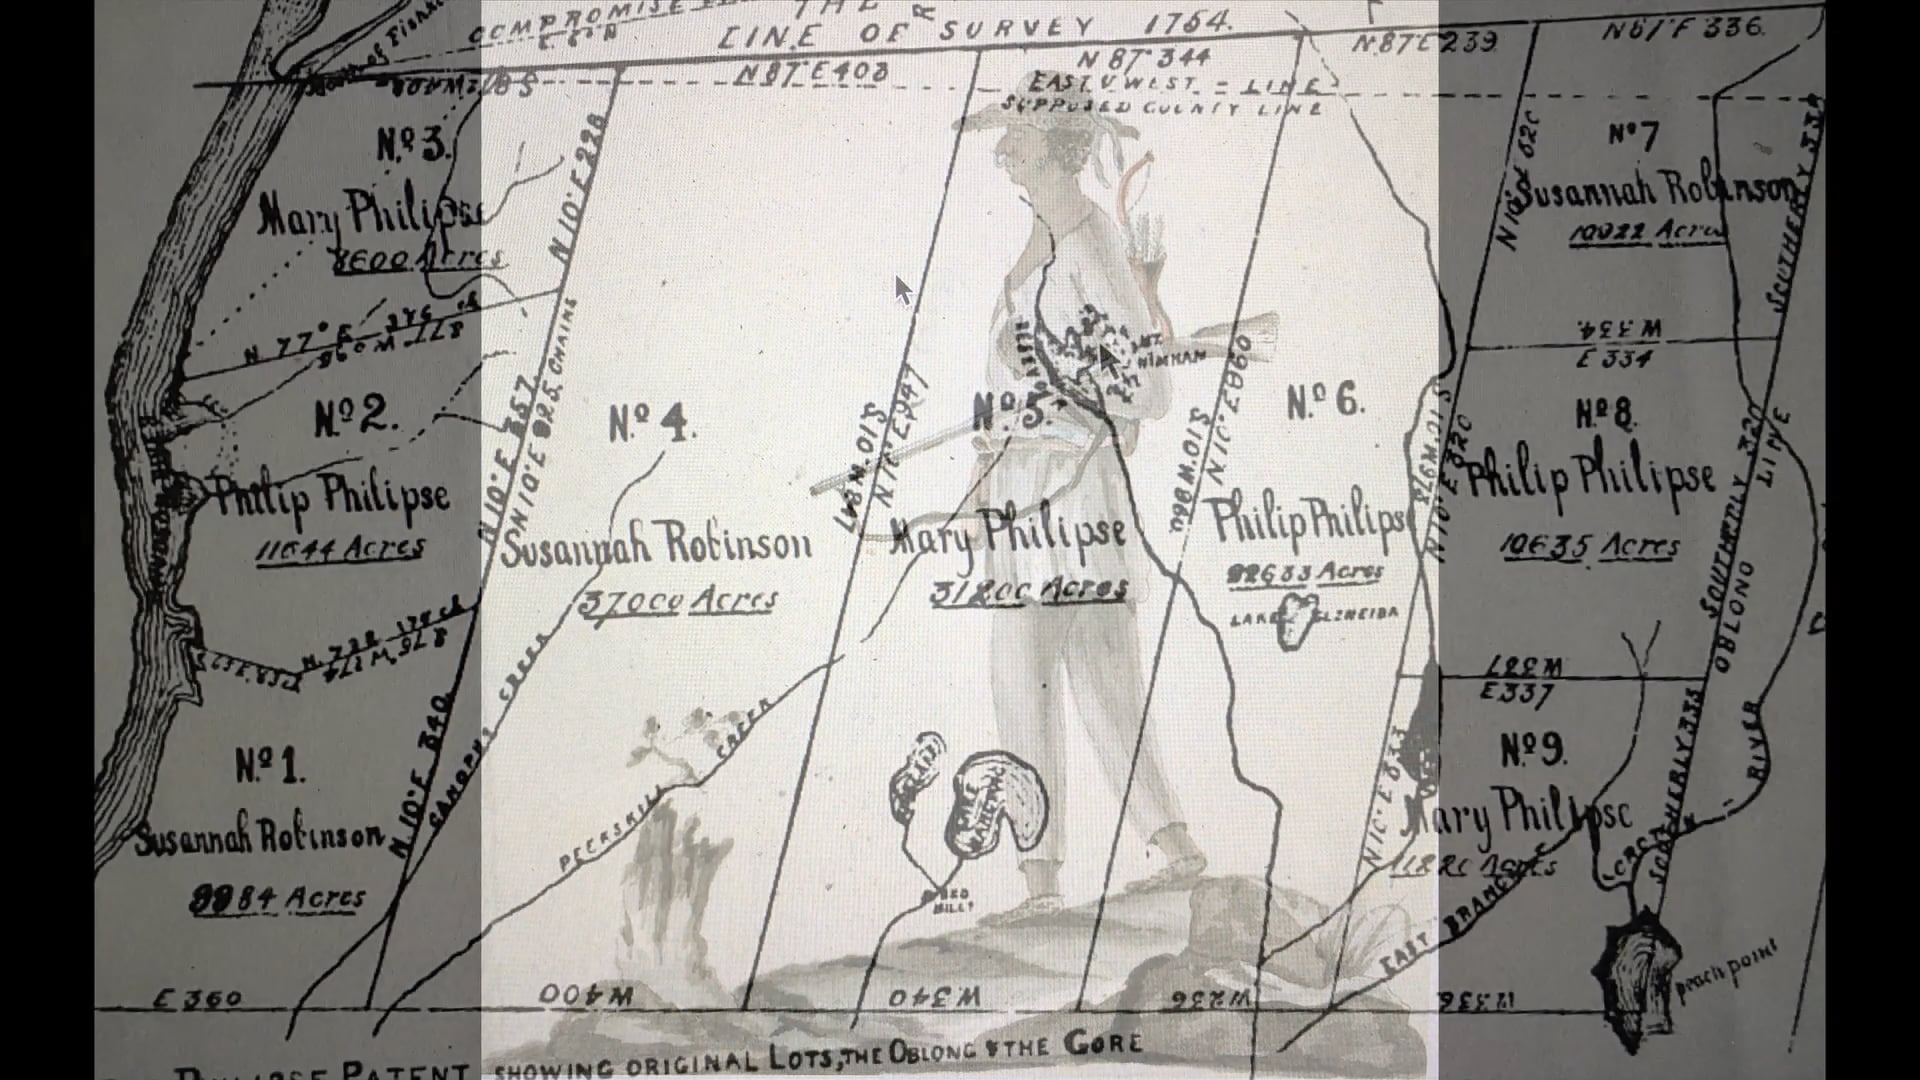 COMPROMISE
THE
LINE OF SURVEY 1754.
N 87° E 403
N 87° 344
N 87 E 239
N 87° E 336.
EAST & WEST = LINE
SUPPOSED COUNTY LINE
No 3.
Mary Philipse
8600 Acres
N 10° E 228
No 7
Susannah Robinson
10922 Acres
SOUTHERLY 334
N 77° E
No 2.
Philip Philipse
11644 Acres
N 10° E 357
S N 10° E 925. CHAINS
No 4.
Susannah Robinson
37000 Acres
S.10.W.847
N 10° E 947
MT.
NIMHAM
No 5.
Mary Philipse
31200 Acres
S.10.W.860
N.10.E.860
No 6.
Philip Philips
22633 Acres
LAKE GLENEIDA
W 334
E 334
No 8.
Philip Philipse
10635 Acres
SOUTHERLY 320
OBLONG LINE
W 337
E 337
No 1.
Susannah Robinson
9984 Acres
N. 10° E 840
CANOPUS CREEK
PEEKSKILL CREEK
LAKE
RED
MILLS
N 10° E 833
No 9.
Mary Philipse
Acres
SOUTHERLY 335
CROTON RIVER
EAST BRANCH
peach point
E 360
W 400
W 340
W 236
W 336
PHILIPSE PATENT SHOWING ORIGINAL LOTS, THE OBLONG & THE GORE